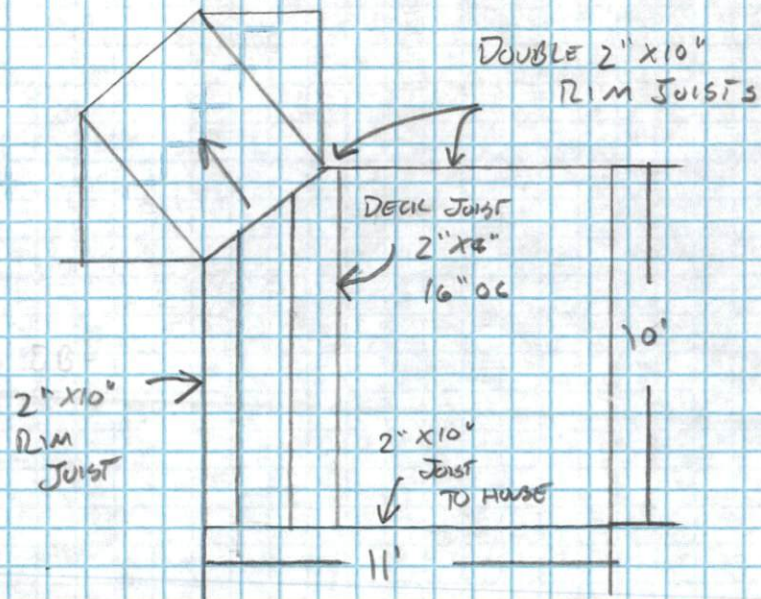 DOUBLE 2" X10"
RIM JOISTS
DECK JOIST
16" OC
10'
2" X10"
RIM
JOIST
2" X10"
JOIST
TO HOUSE
11'